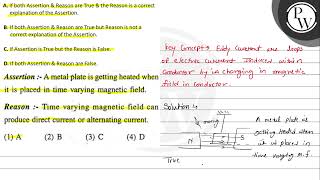 A. If both Assertion & Reason are True & the Reason is a correct explanation of the Assertion.
B. If both Assertion & Reason are True but Reason is not a correct explanation of the Assertion.
C. If Assertion is True but the Reason is False.
D. If both Assertion & Reason are False.
Assertion :- A metal plate is getting heated when it is placed in time varying magnetic field.
Reason :- Time varying magnetic field can produce direct current or alternating current.
(1) A (2) B (3) C (4) D
PW
Key Concept → Eddy Current are loops
of electric current induced within
Conductor by a changing in magnetic
field in Conductor.
Solution :-
moving
N
S
A metal plate is
getting heated when
it is placed in
time varying m.f.
True